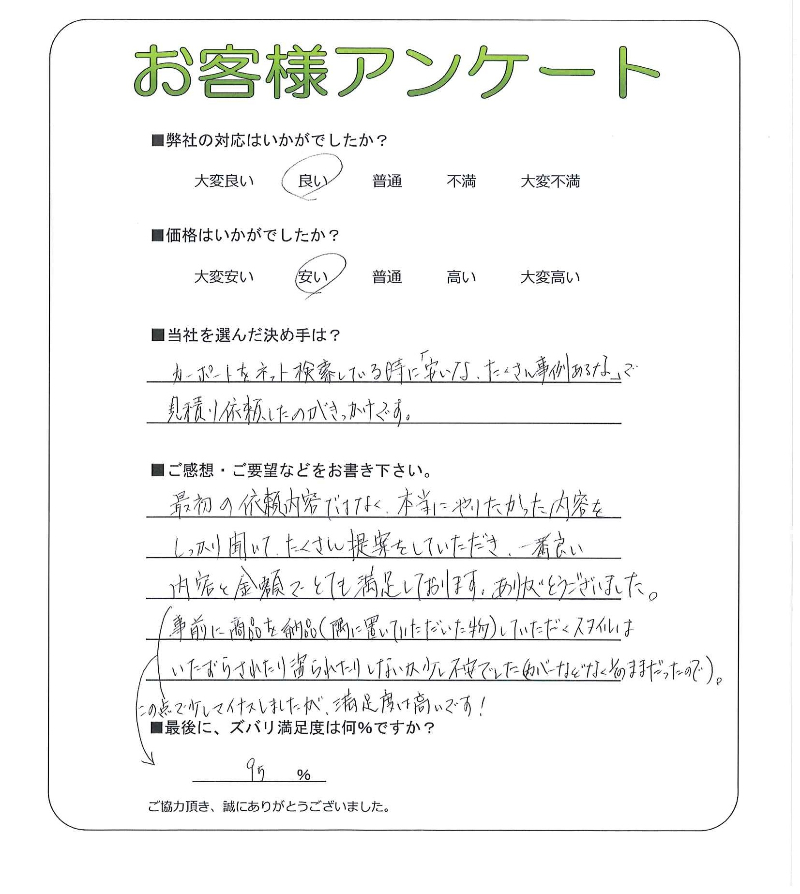 お客様アンケート
■弊社の対応はいかがでしたか？
大変良い 良い 普通 不満 大変不満
■価格はいかがでしたか？
大変安い 安い 普通 高い 大変高い
■当社を選んだ決め手は？
カーポートをネット検索している時に「安いな、たくさん事例あるな」で
見積り依頼したのがきっかけです。
■ご感想・ご要望などをお書き下さい。
最初の依頼内容ではなく、本当にやりたかった内容を
しっかり聞いて、たくさん提案をしていただき、一番良い
内容と金額でとても満足しております。ありがとうございました。
事前に商品を納品(隅に置いていただいた物)していただくスタイルは
いたずらされたり濡られたりしないか少し不安でした(カバーなどなくそのままだったので)。
この点で少しマイナスしましたが、満足度は高いです！
■最後に、ズバリ満足度は何％ですか？
95 ％
ご協力頂き、誠にありがとうございました。